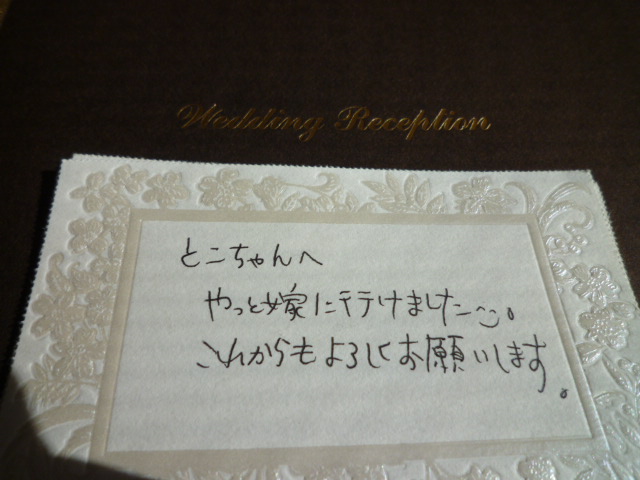 Wedding Reception
とこちゃんへ
やっと嫁に行けました^^。
これからもよろしくお願いします。